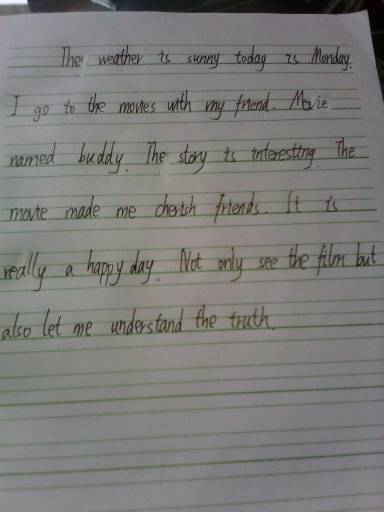 The weather is sunny today is Monday.
I go to the movies with my friend. Movie
named buddy. The story is interesting. The
movie made me cherish friends. It is
really a happy day. Not only see the film but
also let me understand the truth.